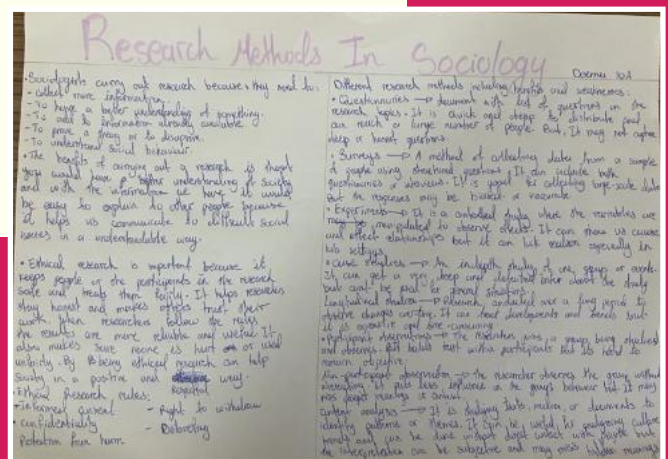 Research Methods In Sociology
10A
• Sociologists carry out research because they need to:
- Collect more information.
- To have a better understanding of something.
- To add to information already available.
- To prove a theory or to disprove.
- To understand social behaviour.
• The benefits of carrying out a research is that
you would have a better understanding of society
and with the information we have it would
be easy to explain to other people because
it helps us communicate to difficult social
issues in a understandable way.
• Ethical research is important because it
keeps people or the participants in the research
safe and treats them fairly. It helps researchers
stay honest and makes others trust their
work. When researchers follow the rules
the results are more reliable and useful. It
also makes sure noone is hurt or used
unfairly. By being ethical research can help
society in a positive and way.
respectful
Ethical Research rules:
• Informed consent - Right to withdraw
• confidentiality - Debriefing
Protection from harm
Different research methods including benefits and weaknesses:
• Questionnaires → document with list of questions on the
research topics. It is quick and cheap to distribute and
can reach a large number of people. But, it may not capture
deep or honest questions.
• Surveys → A method of collecting data from a sample
of people using structured questions. It can include both
questionnaires or interviews. It is good for collecting large-scale data
But the responses may be biased or inaccurate
• Experiments → It is a controlled study where the variables are
manipulated to observe effects. It can show us cause
and effect relationships but it can lack realism especially in
lab settings
• Case studies → An indepth study of one group or event.
It can get a very deep and detailed about the study
but cant be for general situations.
Longitudinal studies → Research conducted over a long period to
observe changes overtime. It can developments and trends but
it is expensive and time-consuming
• Participant observations → The researcher joins a group being studied
and observes. But builds trust with participants but its hard to
remain objective.
Non participant observation → the researcher observes the group without
interacting. It puts less influence on the groups behavior but it may
miss deeper meanings
Content analysis → It is studying texts, media, or documents to
identify patterns or themes. It can be useful for analysing culture
trends and can be done without direct contact with people but
the interpretation can be subjective and may miss hidden meanings